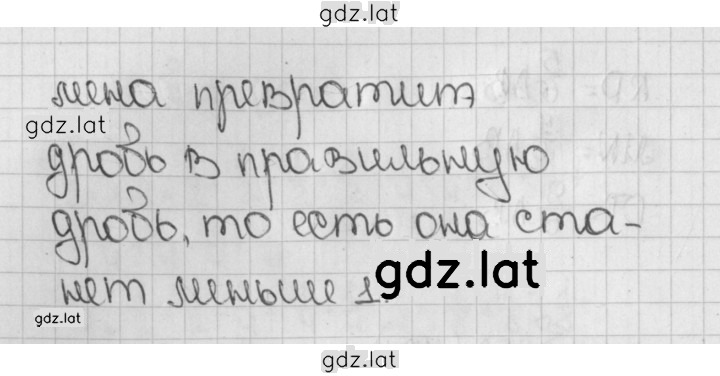 gdz.lat
мена превратит
gdz.lat
дробь в правильную
дробь, то есть она ста-
gdz.lat
нет меньше 1.
gdz.lat
gdz.lat